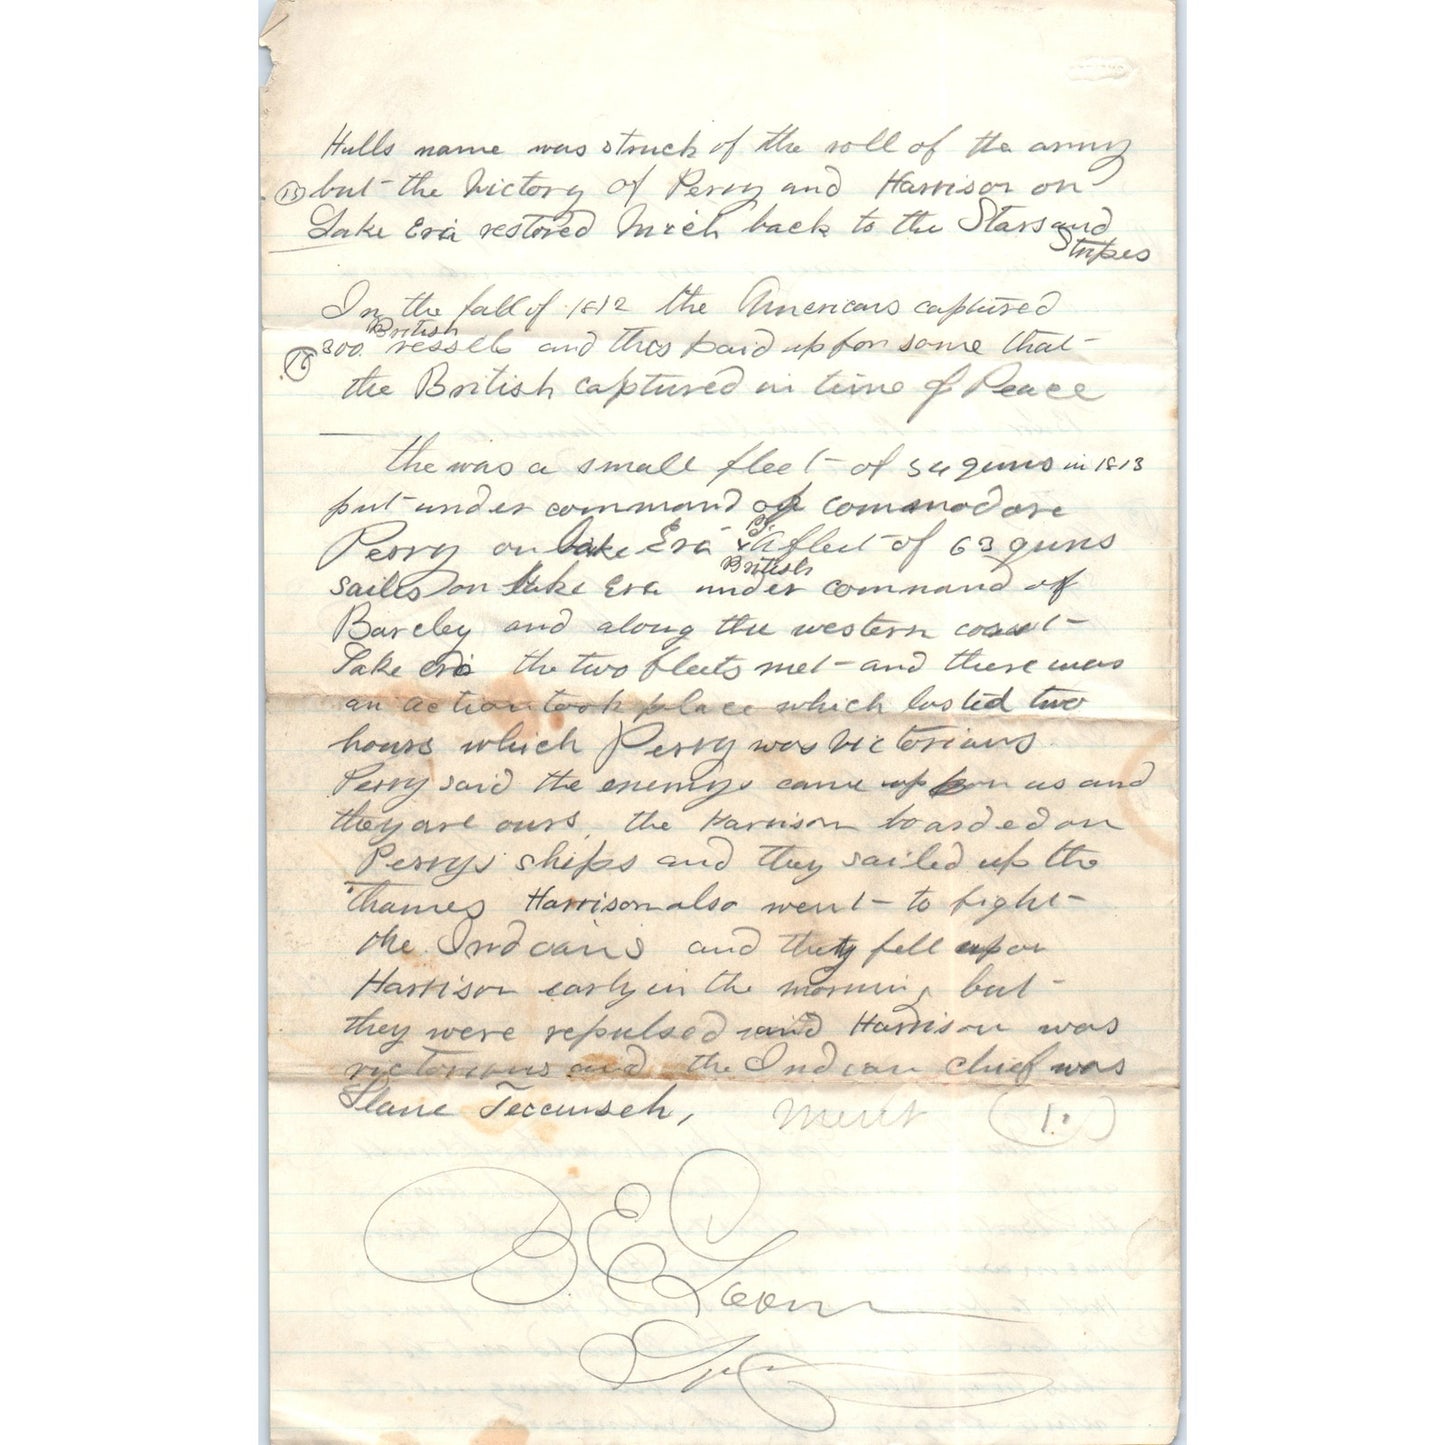 Hulls name was struck of the roll of the army
(15) but the Victory of Perry and Harrison on
Lake Erie restored Mich back to the Stars and
Stripes
In the fall of 1812 the Americans captured
British
(16) 300. vessels and this paid up for some that
the British captured in time of Peace
the was a small fleet of 54 guns in 1813
put under command of commodore
Perry on Lake Erie & A fleet of 63 guns
British
sailes on Lake Erie under command of
Barcley and along the western coast
Lake Erie the two fleets met and there was
an action took place which lasted two
hours which Perry was Victorians
Perry said the enemys came up pon us and
they are ours, the Harrison boarded on
Perrys ships and they sailed up the
Thames Harrison also went to fight
the Indians and they fell upon
Harrison early in the morning but
they were repulsed and Harrison was
victorians and the Indian chief was
Slane Teccumseh, Merit (10)
B. E. Loom